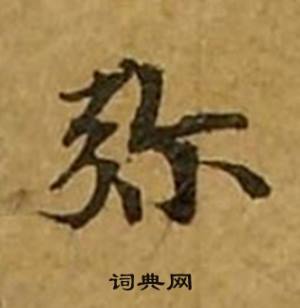 弥
词典网